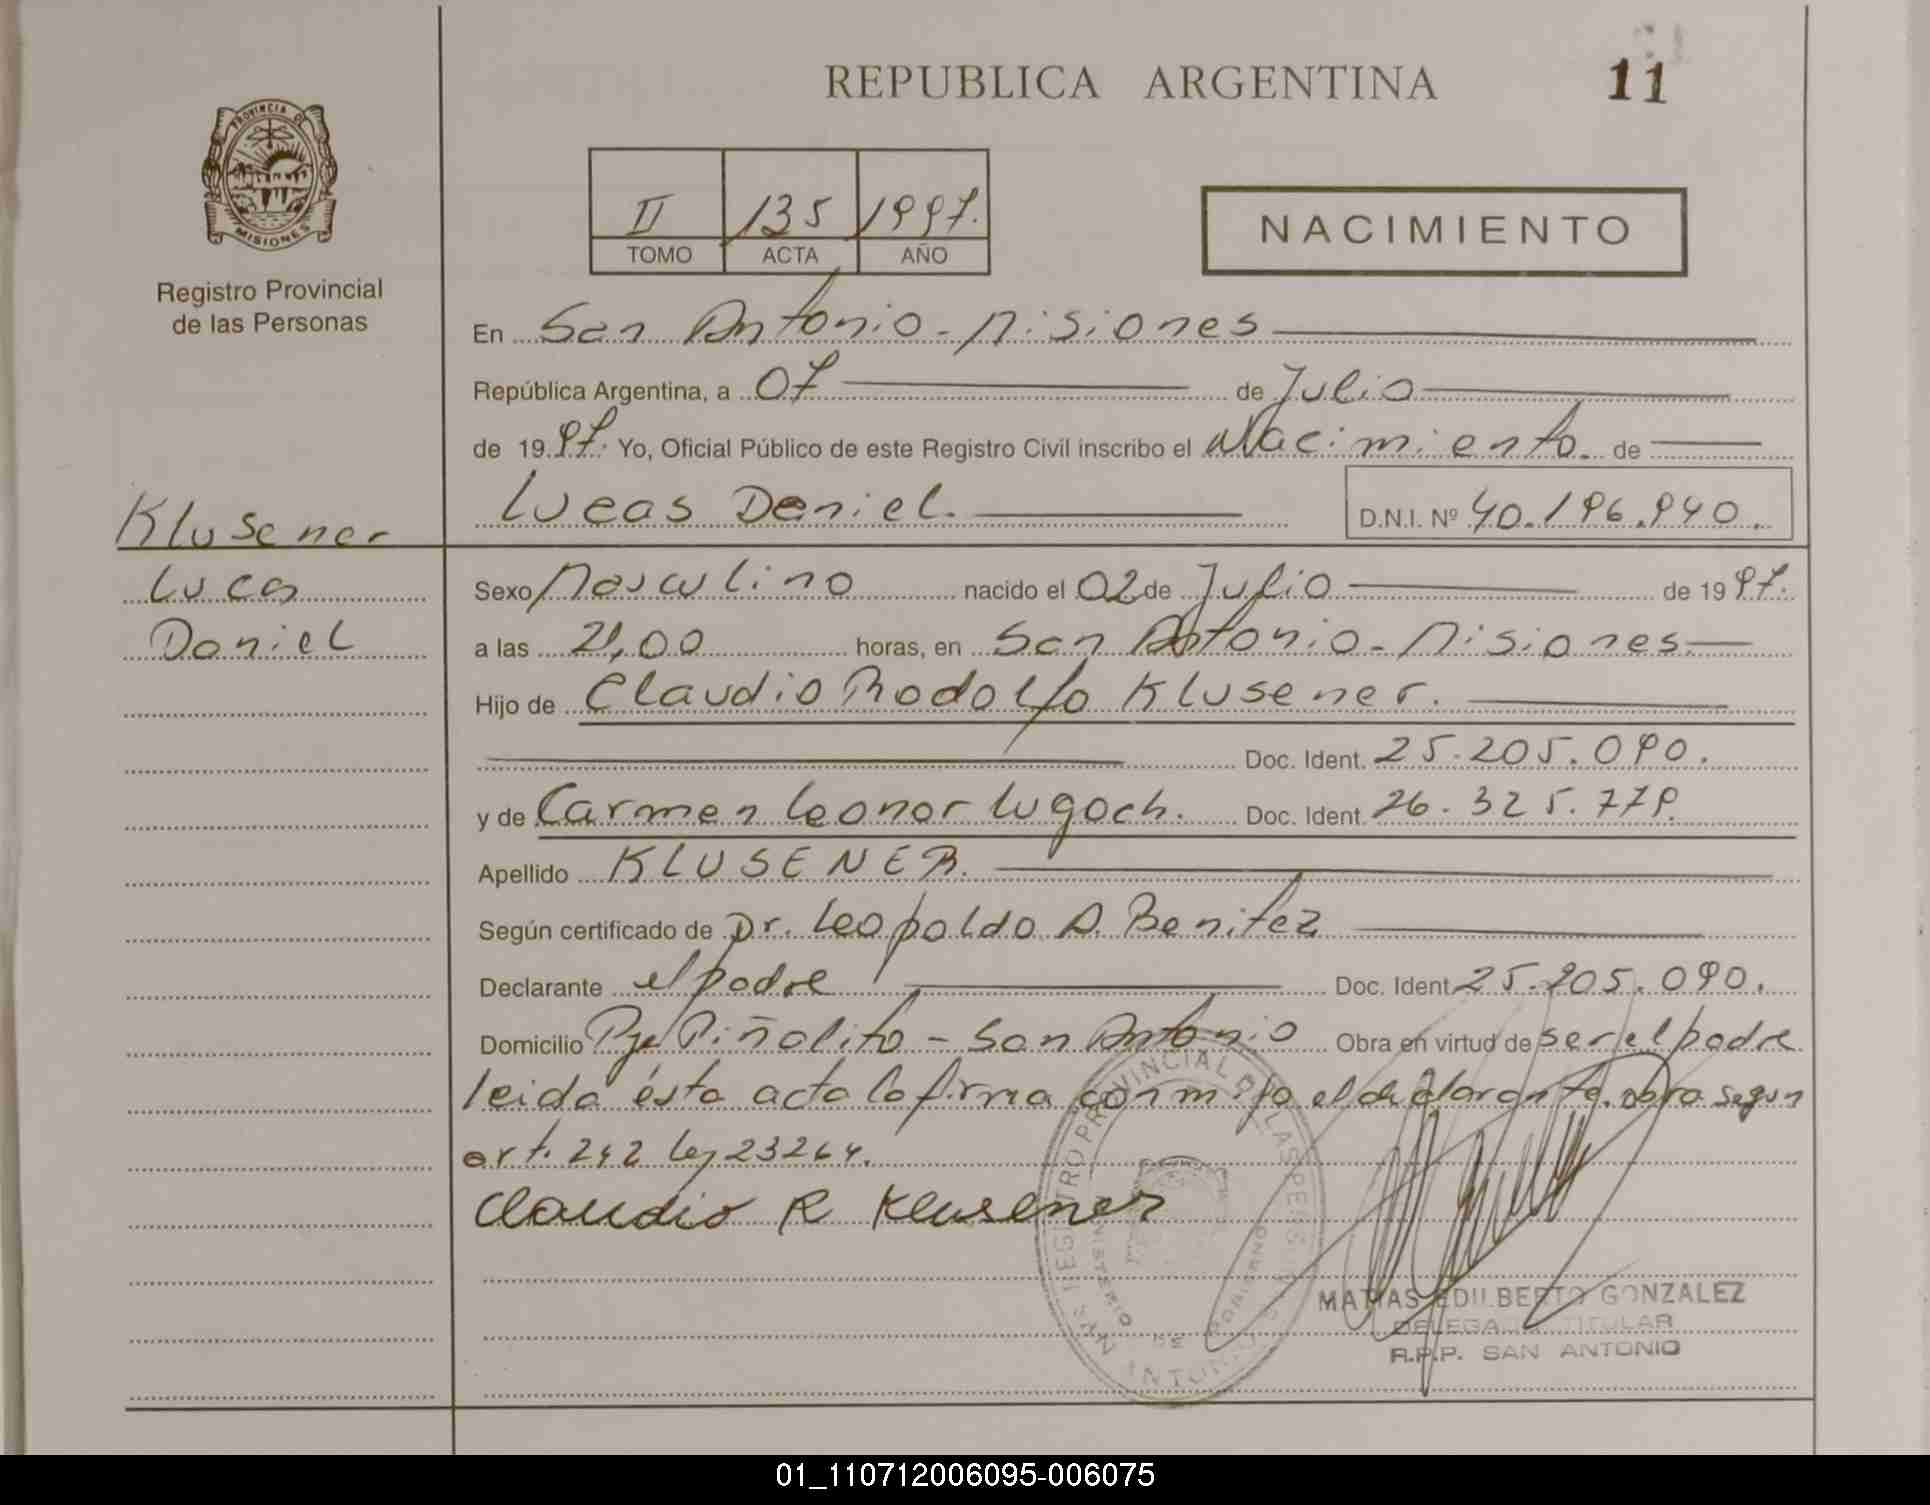 REPUBLICA ARGENTINA
11
PROVINCIA DE
MISIONES
Registro Provincial
de las Personas
II 135 1997.
TOMO ACTA AÑO
NACIMIENTO
En San Antonio - Misiones
República Argentina, a 07 de Julio
de 1997. Yo, Oficial Público de este Registro Civil inscribo el Nacimiento. de
Klusener
Lucas Daniel. D.N.I. Nº 40.196.940.
Lucas
Daniel
Sexo Masculino nacido el 02 de Julio de 1997.
a las 21,00 horas, en San Antonio - Misiones.
Hijo de Claudio Rodolfo Klusener.
Doc. Ident. 25.205.090.
y de Carmen Leonor Lugoch. Doc. Ident. 26.325.779.
Apellido KLUSENER.
Según certificado de Dr. Leopoldo A. Benitez
Declarante el padre Doc. Ident. 25.205.090.
Domicilio Pje Piñalito - San Antonio Obra en virtud de ser el padre
leida ésta acta la firma conmigo el declarante. obra segun
art. 242 ley 23264.
Claudio R Klusener
REGISTRO PROVINCIAL DE LAS PERSONAS
MINISTERIO DE GOBIERNO
SAN ANTONIO
MATIAS EDILBERTO GONZALEZ
DELEGADO TITULAR
R.P.P. SAN ANTONIO
01_110712006095-006075